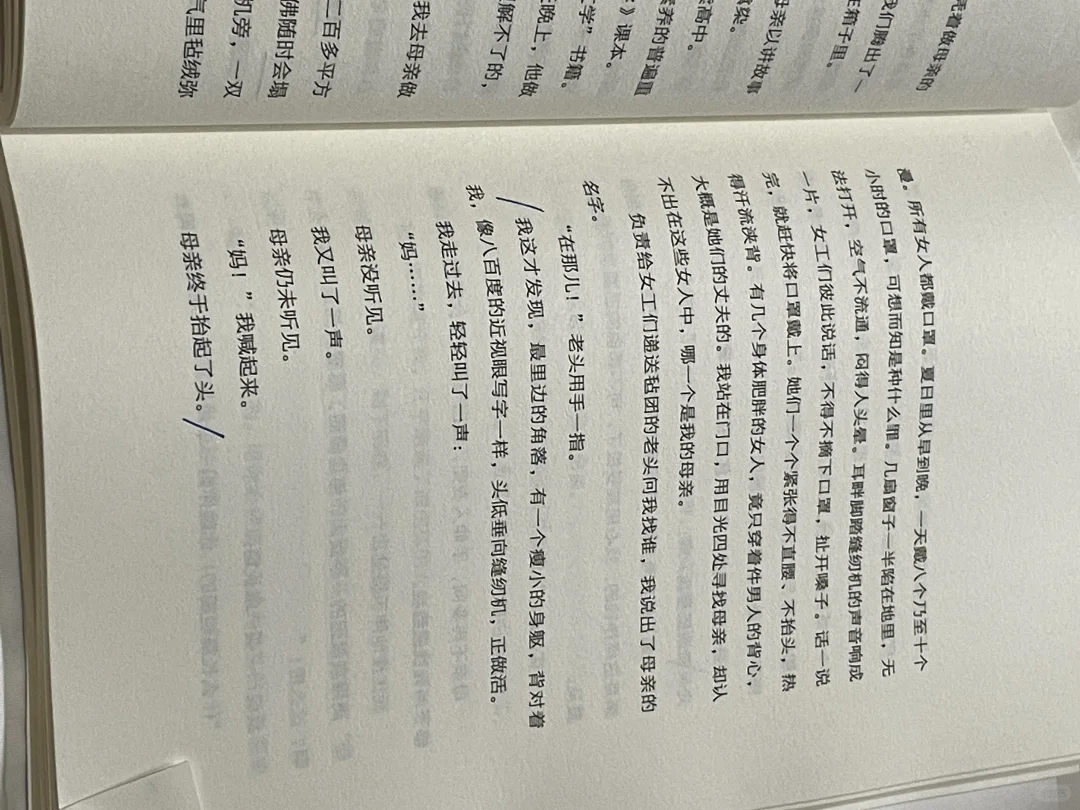 凭着做母亲的
我们腾出了一
在箱子里。
母亲以讲故事
感染。
高中。
素养的普遍重
》课本。
文学”书籍。
在晚上，他做
理解不了的，
我去母亲做
二百多平方
佛随时会塌
机旁，一双
气里毡绒弥
漫。所有女人都戴口罩。夏日里从早到晚，一天戴八个乃至十个
小时的口罩，可想而知是种什么罪。几扇窗子一半陷在地里，无
法打开，空气不流通，闷得人头晕。耳畔脚踏缝纫机的声音响成
一片，女工们彼此说话，不得不摘下口罩，扯开嗓子。话一说
完，就赶快将口罩戴上。她们一个个紧张得不直腰、不抬头，热
得汗流浃背。有几个身体肥胖的女人，竟只穿着件男人的背心，
大概是她们的丈夫的。我站在门口，用目光四处寻找母亲，却认
不出在这些女人中，哪一个是我的母亲。
负责给女工们递送毡团的老头问我找谁，我说出了母亲的
名字。
“在那儿！”老头用手一指。
我这才发现，最里边的角落，有一个瘦小的身躯，背对着
我，像八百度的近视眼写字一样，头低垂向缝纫机，正做活。
我走过去，轻轻叫了一声：
“妈……”
母亲没听见。
我又叫了一声。
母亲仍未听见。
“妈！”我喊起来。
母亲终于抬起了头。